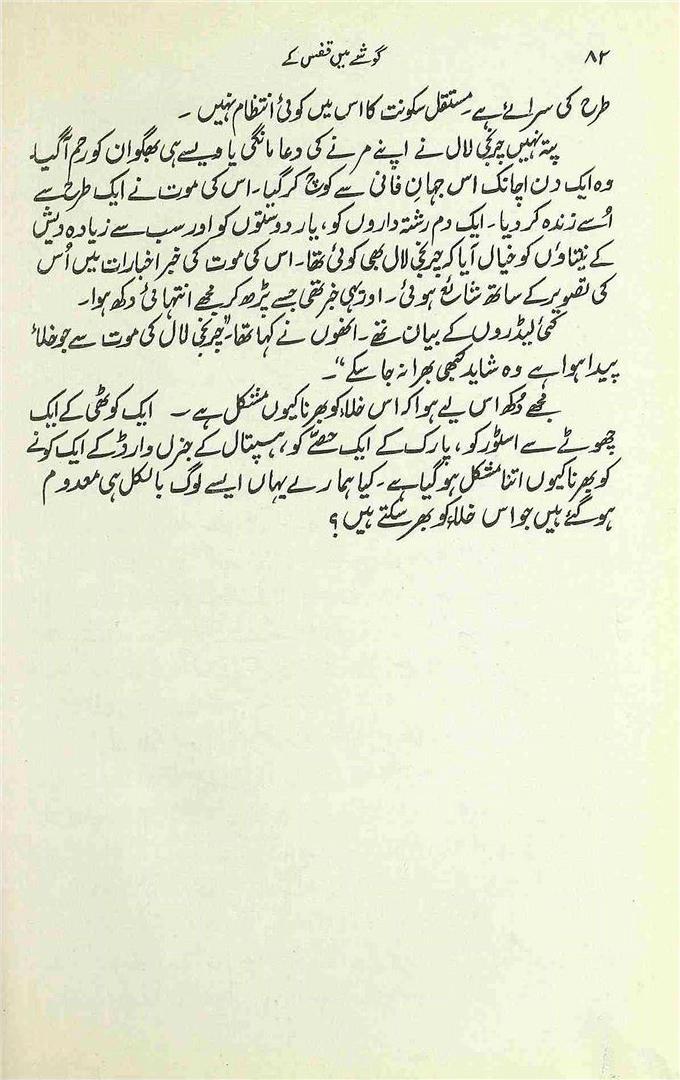 ۸۲ گوشے میں قفس کے
طرح کی سرائے ہے۔ مستقل سکونت کا اس میں کوئی انتظام نہیں۔
پتہ نہیں چرنجی لال نے اپنے مرنے کی دعا مانگی یا ویسے ہی بھگوان کو رحم آگیا۔
وہ ایک دن اچانک اس جہانِ فانی سے کوچ کر گیا۔ اس کی موت نے ایک طرح سے
اُسے زندہ کر دیا۔ ایک دم رشتہ داروں کو، یار دوستوں کو اور سب سے زیادہ دیش
کے نیتاؤں کو خیال آیا کہ چرنجی لال بھی کوئی تھا۔ اس کی موت کی خبر اخبارات میں اُس
کی تصویر کے ساتھ شائع ہوئی۔ اور یہی خبر تھی جسے پڑھ کر مجھے انتہائی دکھ ہوا۔
کئی لیڈروں کے بیان تھے۔ انھوں نے کہا تھا۔ "چرنجی لال کی موت سے جو خلاء
پیدا ہوا ہے وہ شاید کبھی بھرا نہ جا سکے"۔
مجھے دُکھ اس لیے ہوا کہ اس خلاء کو بھرنا کیوں مشکل ہے ۔ ایک کوٹھی کے ایک
چھوٹے سے اسٹور کو، پارک کے ایک حصّے کو، ہسپتال کے جنرل وارڈ کے ایک کونے
کو بھرنا کیوں اتنا مشکل ہو گیا ہے۔ کیا ہمارے یہاں ایسے لوگ بالکل ہی معدوم
ہو گئے ہیں جو اس خلاء کو بھر سکتے ہیں؟